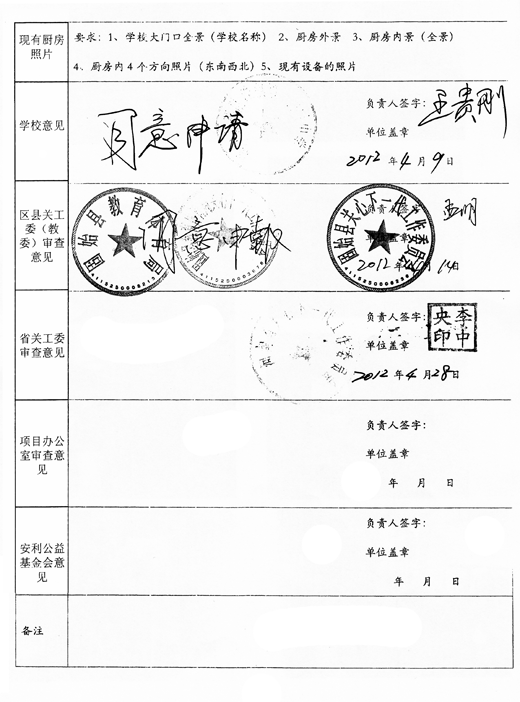 现有厨房
照片
要求：1、学校大门口全景（学校名称） 2、厨房外景 3、厨房内景（全景）
4、厨房内4个方向照片（东南西北）5、现有设备的照片
学校意见
同意申请
负责人签字：
单位盖章
2012年4月9日
区县关工
委（教
委）审查
意见
固始县教育体育局
同意申报
固始县关心下一代工作委员会
负责人签字
盖章
2012年 月14日
省关工委
审查意见
负责人签字：
李中
央印
单位盖章
2012年4月28日
项目办公
室审查意
见
负责人签字：
单位盖章
年 月 日
安利公益
基金会意
见
负责人签字：
单位盖章
年 月 日
备注